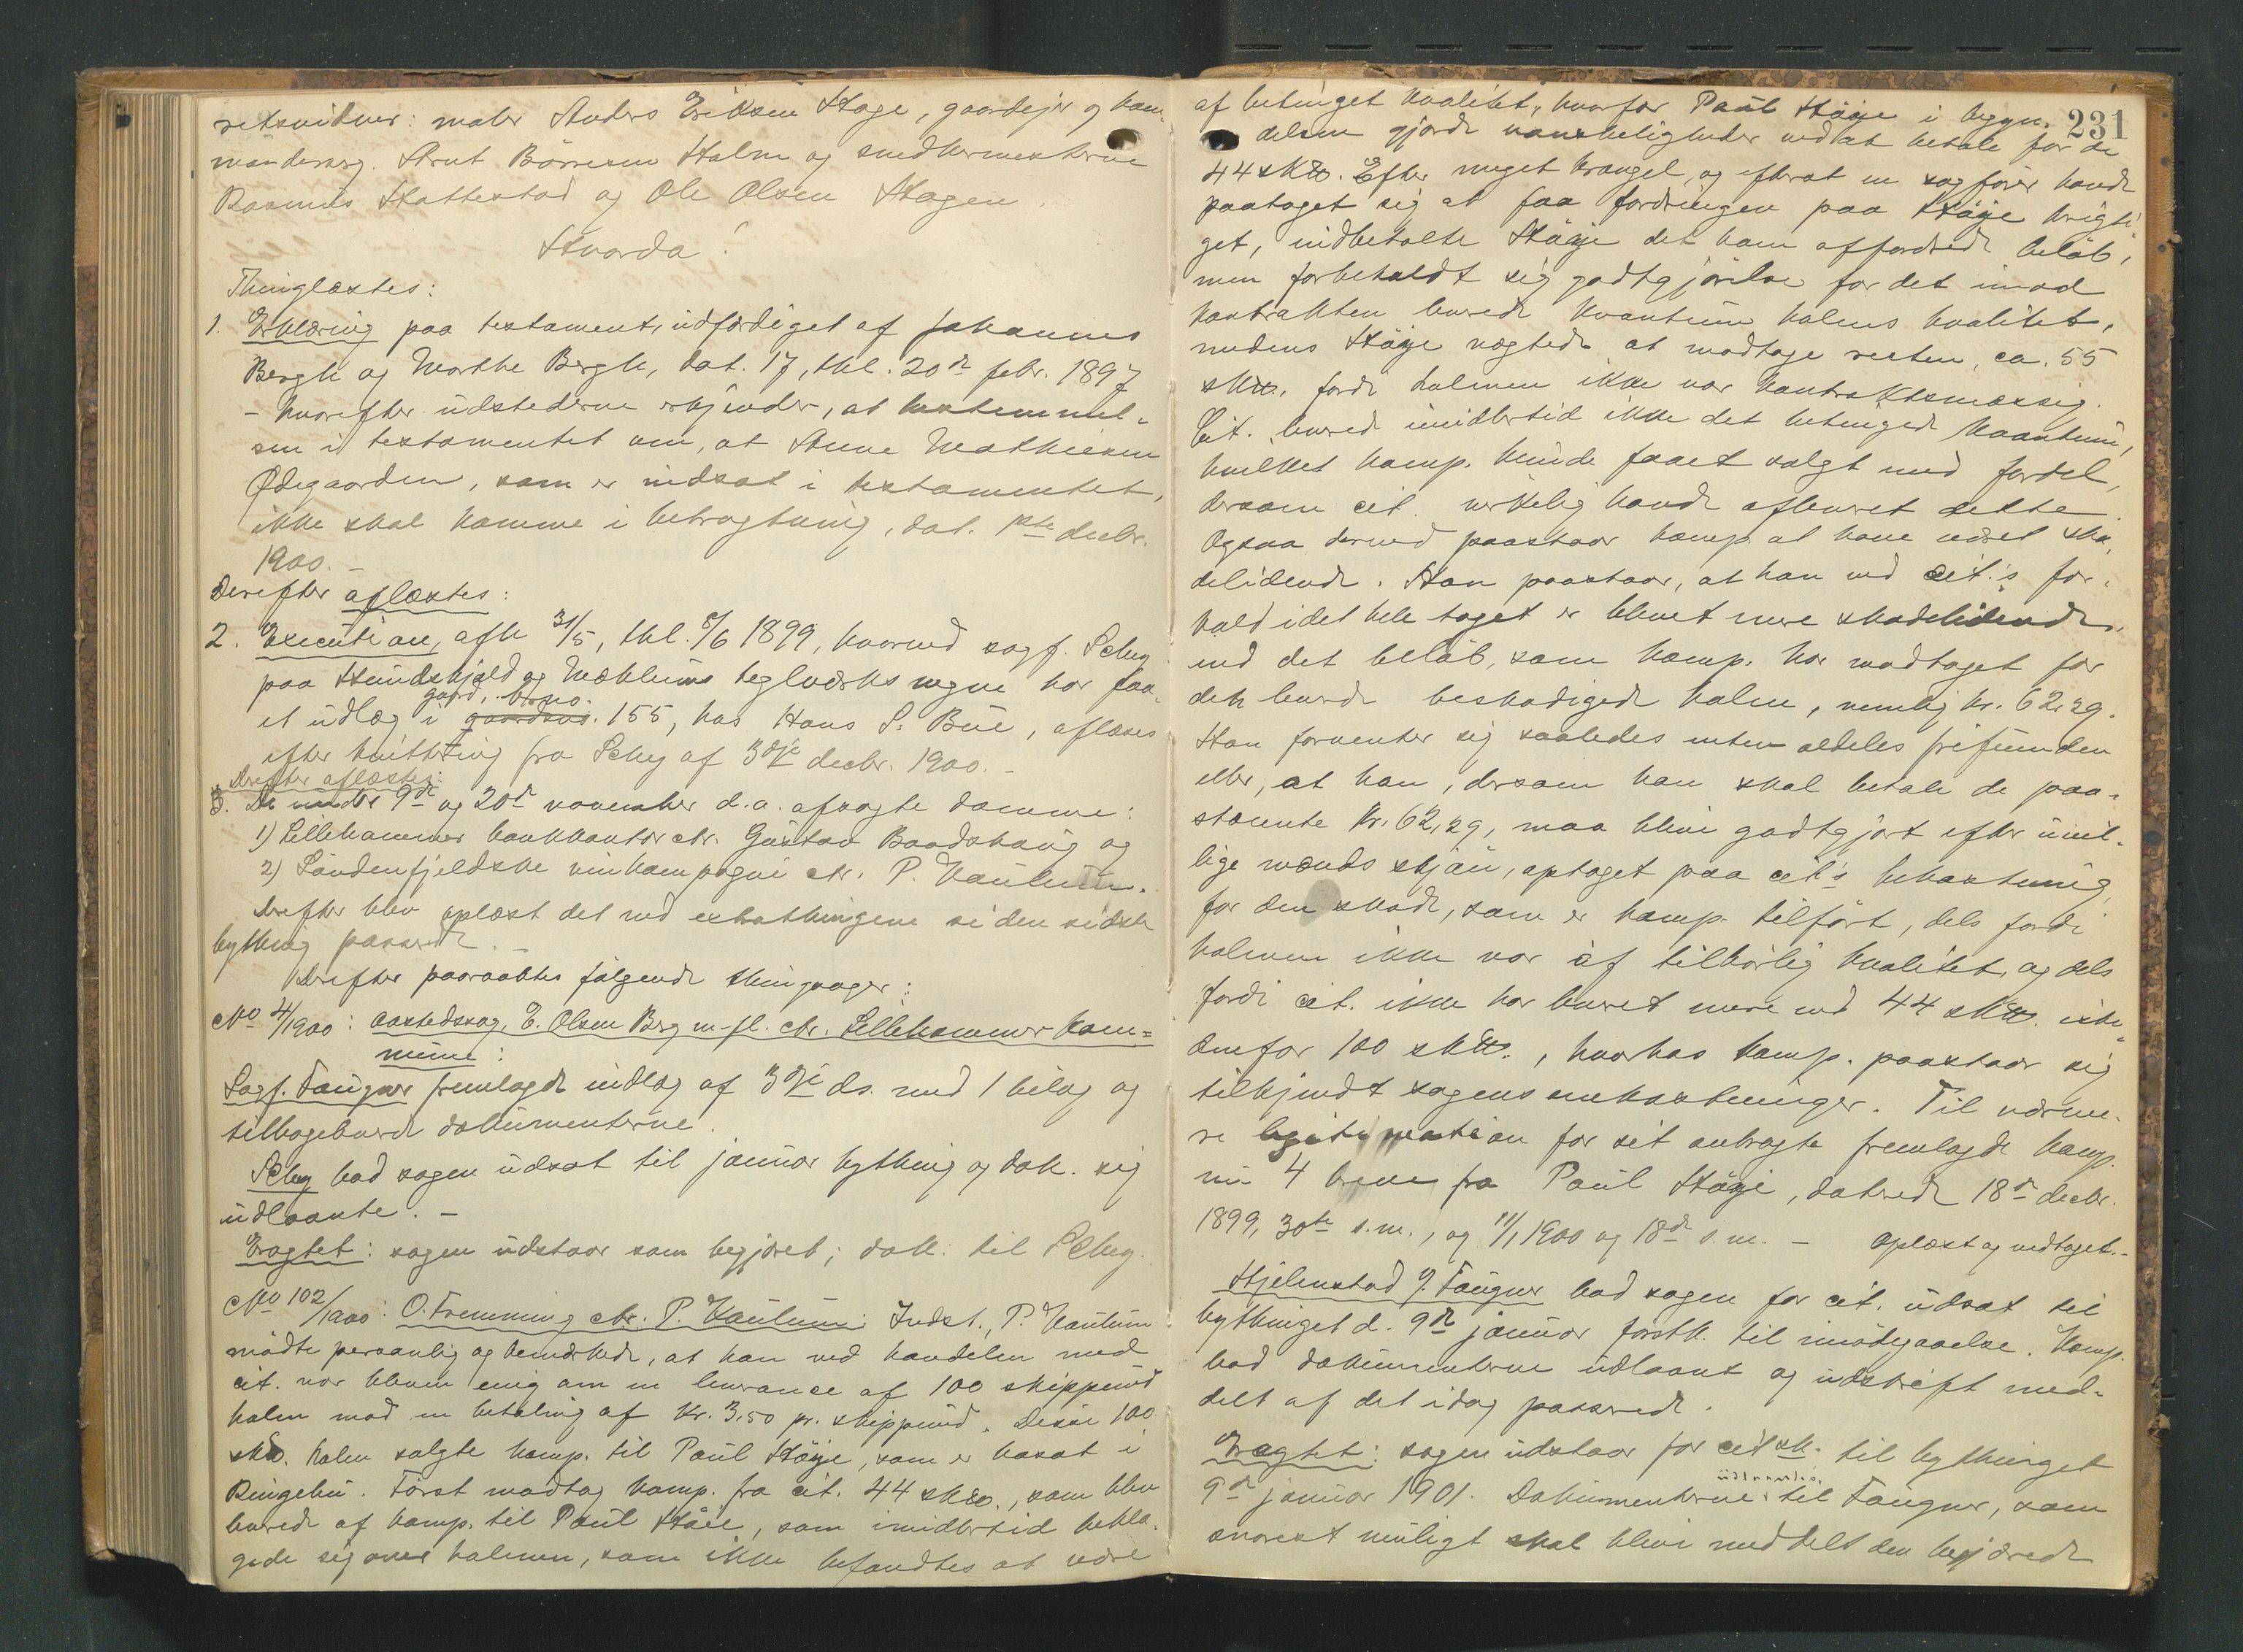 retsvidner: maler Anders Eriksen Hage, gaardejer og kam-
mandersrg. Arnt Börresen Holm og snedkermesterne
Rasmus Hattestad og Ole Olsen Hagen.
Hvorda!
Thinglæstes:
1. Erklæring paa testament, udfærdiget af Johannes
Bergh og Marthe Bergh, dat. 17, thl. 20de febr. 1897
- hvorefter udstederne erkjender, at bestemmel-
sen i testamentet om, at Anne Mathiesen
Ødegaarden, som er indsat i testamentet,
ikke skal komme i betragtning, dat. 1ste decbr.
1900. -
Derefter aflæstes:
2. Execution, afh 31/5, thl. 5/6 1899, hvorved sagf. Scheg
paa Hundskjold og Mæhlums teglværks vegne har faa-
et udlæg i gaardsno. gaard, brno. 155, hos Hans S. Bue, aflæses
efter kvittering fra Scheg af 3die decbr. 1900. -
Derefter aflæstes:
3. De under 9de og 20de november d.a. afsagte domme:
1) Lillehammer bankkontor ctr. Gustav Baadshaug og
2) Söndenfjeldske vinkompagni ctr. P. Kaulum.
Derefter blev oplæst det ved extrathingene siden sidste
bything passerede. -
Derefter paaraabtes fölgende thingsager:
No 4/1900: aastedssag, E. Olsen Berg m. fl. ctr. Lillehammer kom-
mune:
Sagf. Faugner fremlagde indlæg af 3die ds. med 1 bilag og
tilbageleverede dokumenterne.
Scheg bad sagen udsat til januar bything og dok. sig
udlaante. -
Eragtet: sagen udstaar som begjæret; dok. til Scheg.
No 102/1900: O. Fremming ctr. P. Kaulum. Indst., P. Kaulum
mödte personlig og bemærkede, at han ved handelen med
cit. var bleven enig om en leverance af 100 skippund
halm mod en betaling af Kr. 3,50 pr. skippund. Disse 100
sk℔. halm solgte komp. til Paul Höije, som er bosat i
Ringebu. Först modtog komp. fra cit. 44 sk℔., som blev
leveret af komp. til Paul Höie, som imidlertid bekla-
gede sig over halmen, som ikke befandtes at være
231
af betinget kvalitet, hvorfor Paul Höije i begyn-
delsen gjorde vanskeligheder ved at betale for de
44 sk℔. Efter meget krangel, og efterat en sagförer havde
paataget sig at faa fordringen paa Höije brigti-
get, indbetalte Höije det ham affordrede belöb,
men forbeholdt sig godtgjörelse for det imod
kontrakten leverede kvantum halms kvalitet,
medens Höije nægtede at modtage resten, ca. 55
sk℔., fordi halmen ikke var kontraktsmæssig.
Cit. leverede imidlertid ikke det betingede kvantum,
hvilket komp. kunde faaet solgt med fordel,
dersom cit. virkelig havde afleveret dette.
Ogsaa derved paastaar komp. at have været ska-
delidende. Han paastaar, at han ved cit.'s for-
hold i det hele taget er blevet mere skadelidende,
end det belöb, som komp. har modtaget for
den leverede beskadigede halm, nemlig kr. 62,29.
Han forventer sig saaledes enten aldeles frifunden
eller, at han, dersom han skal betale de paa-
stævnte Kr. 62,29, maa blive godtgjort efter uvil-
lige mænds skjön, optaget paa cit's bekostning,
for den skade, som er komp. tilfört, dels fordi
halmen ikke var af tilbörlig kvalitet, og dels
fordi cit. ikke har leveret mere end 44 sk℔. iste-
denfor 100 sk℔., hvorhos komp. paastaar sig
tilkjendt sagens omkostninger. Til nærme-
re legitimation for sit anbragte fremlagde komp.
nu 4 breve fra Paul Höije, daterede 18de decbr.
1899, 30te s.m., og 11/1 1900 og 18de s.m. - Oplæst og vedtaget. -
Hjelmstad f. Faugner bad sagen for cit. udsat til
bythinget d. 9de januar förstk. til imödegaaelse. Komp.
bad dokumenterne udlaant og udskrift med-
delt af det idag passerede.
Eragtet: sagen udstaar for cit.sk. til bythinget
9de januar 1901. Dokumenterne udlaantes til Faugner, som
snarest muligt skal blive meddelt den begjærede